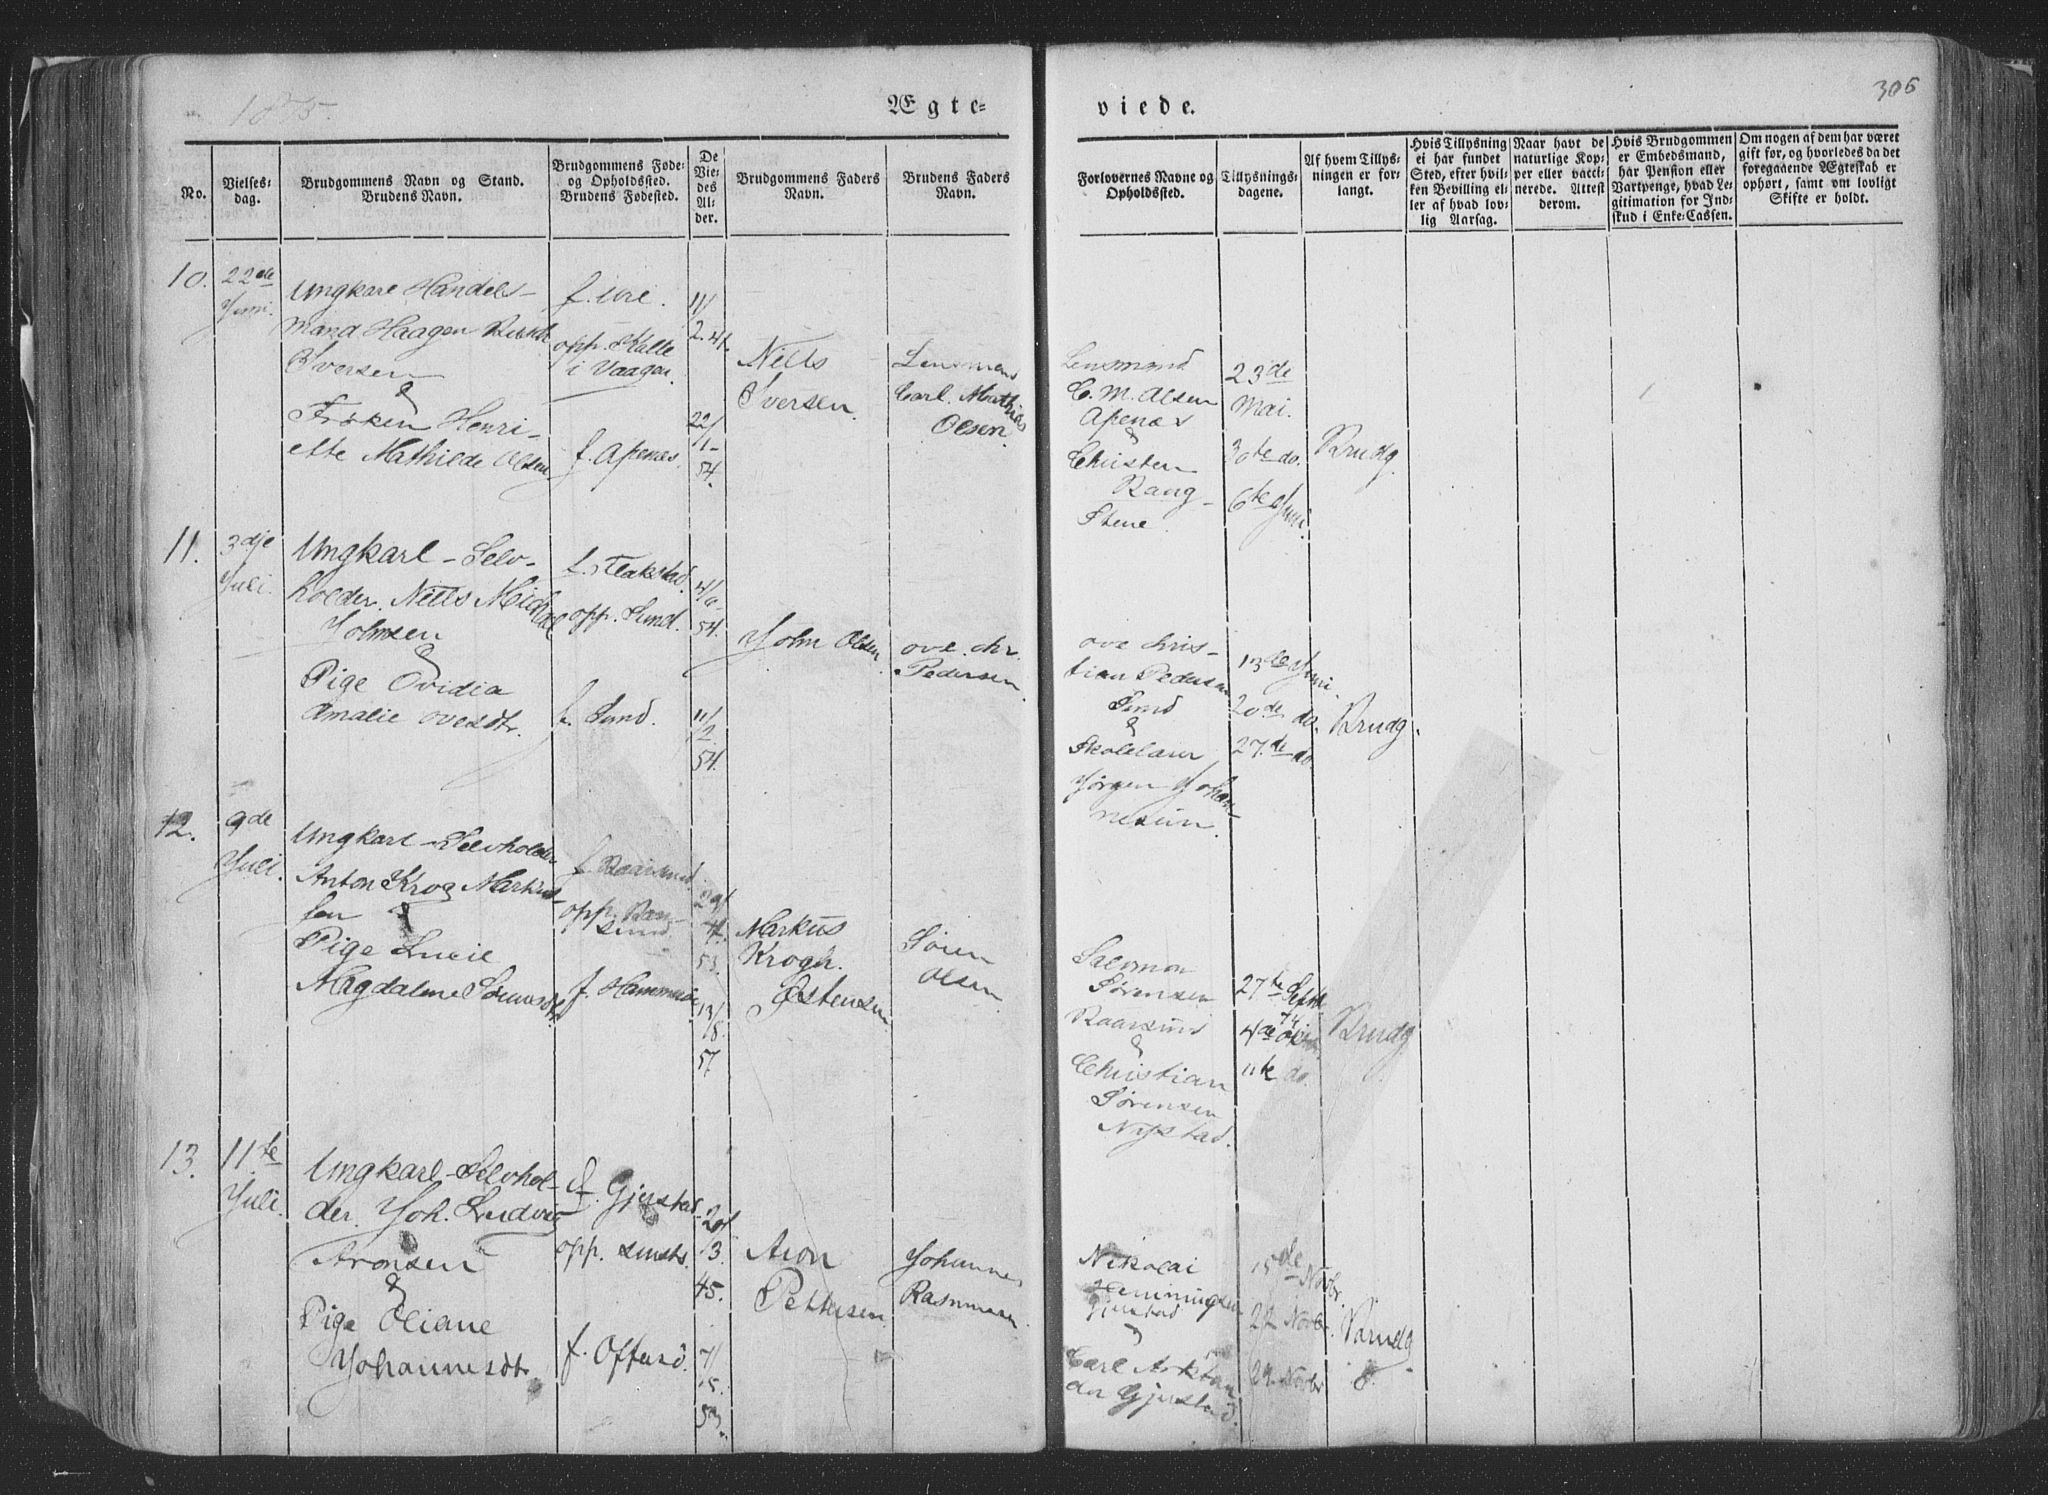 1875.
Ægte-
viede.
306
No.
Vielses-
dag.
Brudgommens Navn og Stand.
Brudens Navn.
Brudgommens Føde-
og Opholdssted.
Brudens Fødested.
De
Vie-
des
Al-
der.
Brudgommens Faders
Navn.
Brudens Faders
Navn.
Forlovernes Navne og
Opholdssted.
Tillysnings-
dagene.
Af hvem Tillys-
ningen er for-
langt.
Hvis Tillysning
ei har fundet
Sted, efter hvil-
ken Bevilling el-
ler af hvad lov-
lig Aarsag.
Naar havt de
naturlige Kop-
per eller vacci-
nerede. Attest
derom.
Hvis Brudgommen
er Embedsmand,
har Pension eller
Vartpenge, hvad Le-
gitimation for Ind-
skud i Enke-Cassen.
Om nogen af dem har været
gift før, og hvorledes da det
foregaaende Ægteskab er
ophørt, samt om lovligt
Skifte er holdt.
10.
22de
Juni.
Ungkarl Handels-
mand Haagen
Iversen
&
Frøken Henri-
ette Mathilde Olsen
f.
opp. Kalle
i Vaagen.
f. Apenæs.
11/
2.41.
22/
1-
54.
Niels
Iversen.
Lensmand
Carl Mathias
Olsen.
Lensmand
C. M. Olsen
Apenæs
&
Christen
Rang-
Stene.
23de
Mai.
30te do.
6te Juni.
Brudg.
11.
3dje
Juli.
Ungkarl-Selv-
holder. Niels Michael
Johnsen
&
Pige Ovidia
Amalie Ovesdtr.
f. Flakstad.
opp. Sund.
f. Sund.
54.
11/
2
54.
John Olsen
Ove Chr.
Pedersen.
Ove Chris-
tian Pedersen
Sund
&
Skolelærer
Jørgen Johan-
nesen.
13de Juni.
20de do.
27.de do.
Brudg.
12.
9de
Juli.
Ungkarl-Selvholder
Anton Krog Markus-
sen &
Pige Lucie
Magdalene Sørensdtr.
f. Raarsund
opp. Raar-
sund.
f. Hammerø
29/
4.
53.
13/
8.
57
Markus
Krogh.
Østensen
Søren
Olsen
Salomon
Sørensen
Raarsund
&
Christian
Sørensen
Nystad.
27te Septbr
74
4de Oktbr.
11te do.
Brudg
13.
11.te
Juli.
Ungkarl-Selvhol-
der. Joh. Ludvig
Aronsen
&
Pige Oliane
Johannesdtr.
f. Gjerstad.
opp. smsts.
f. Offersø.
20/
3.
45.
53.
Aron
Pettersen.
Johannes
Rasmussen.
Nikolai
Henningsen
Gjerstad
&
Carl
der Gjerstad.
15de Novbr.
22 Novbr.
29. Novbr
Brudg